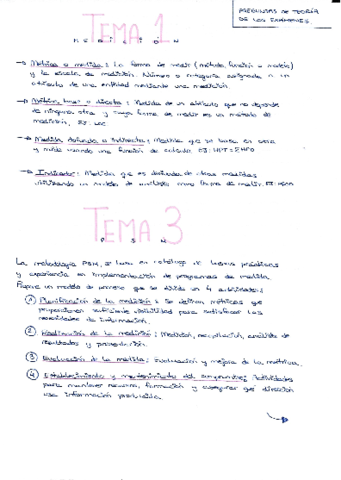 PREGUNTAS DE TEORÍA
DE LOS EXÁMENES.
TEMA 1
MEDICIÓN
→ Métrica o medida: La forma de medir (método, función o modelo)
y la escala de medición. Número o categoría asignado a un
atributo de una entidad mediante una medición.
→ Métrica base o directa: Medida de un atributo que no depende
de ninguna otra y cuya forma de medir es un método de
medición. EJ: LOC
→ Medida derivada o indirecta: Medida que se basa en otra
y mide usando una función de cálculo EJ:
→ Indicador: Medida que es derivada de otras medidas
utilizando un modelo de análisis como forma de medir. EJ:
TEMA 3
PSM
La metodología PSM, se basa en catálogo de buenas prácticas
y experiencia en implementación de programas de medida.
Propone un modelo de proceso que se divide en 4 actividades:
① Planificación de la medición: Se definen métricas que
proporcionen suficiente visibilidad para satisfacer las
necesidades de información.
② Realización de la medición: Medición, recopilación, análisis de
resultados y presentación.
③ Evaluación de la medida: Evaluación y mejora de la métrica.
④ Establecimiento y mantenimiento del compromiso: Actividades
para mantener recursos, formación y asegurar que dirección
usa información producida.